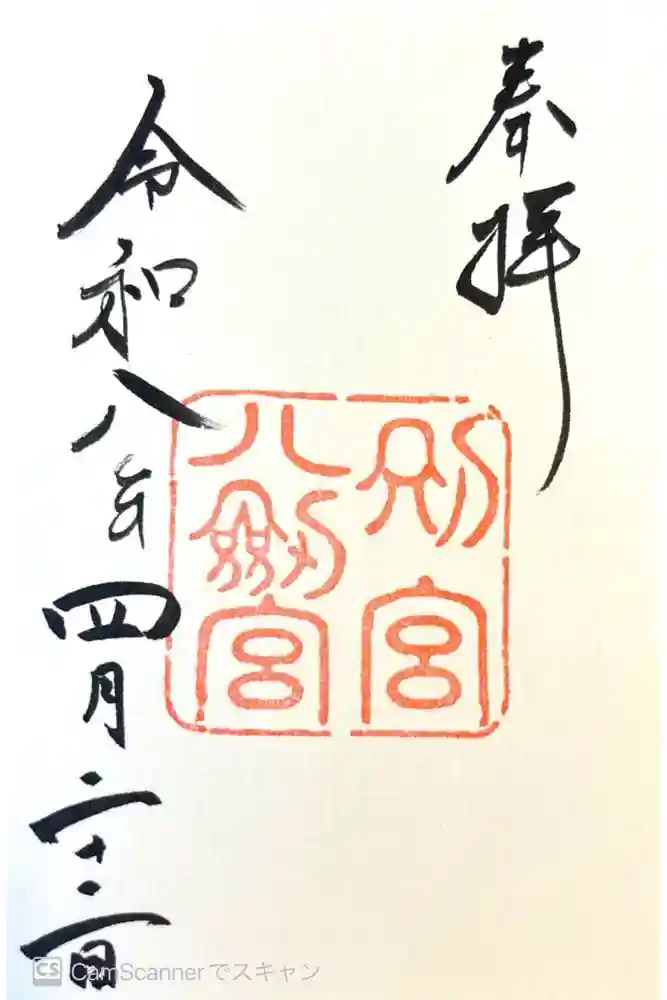 奉拝
別宮
八劔宮
令和八年四月二十二日
CS CamScannerでスキャン